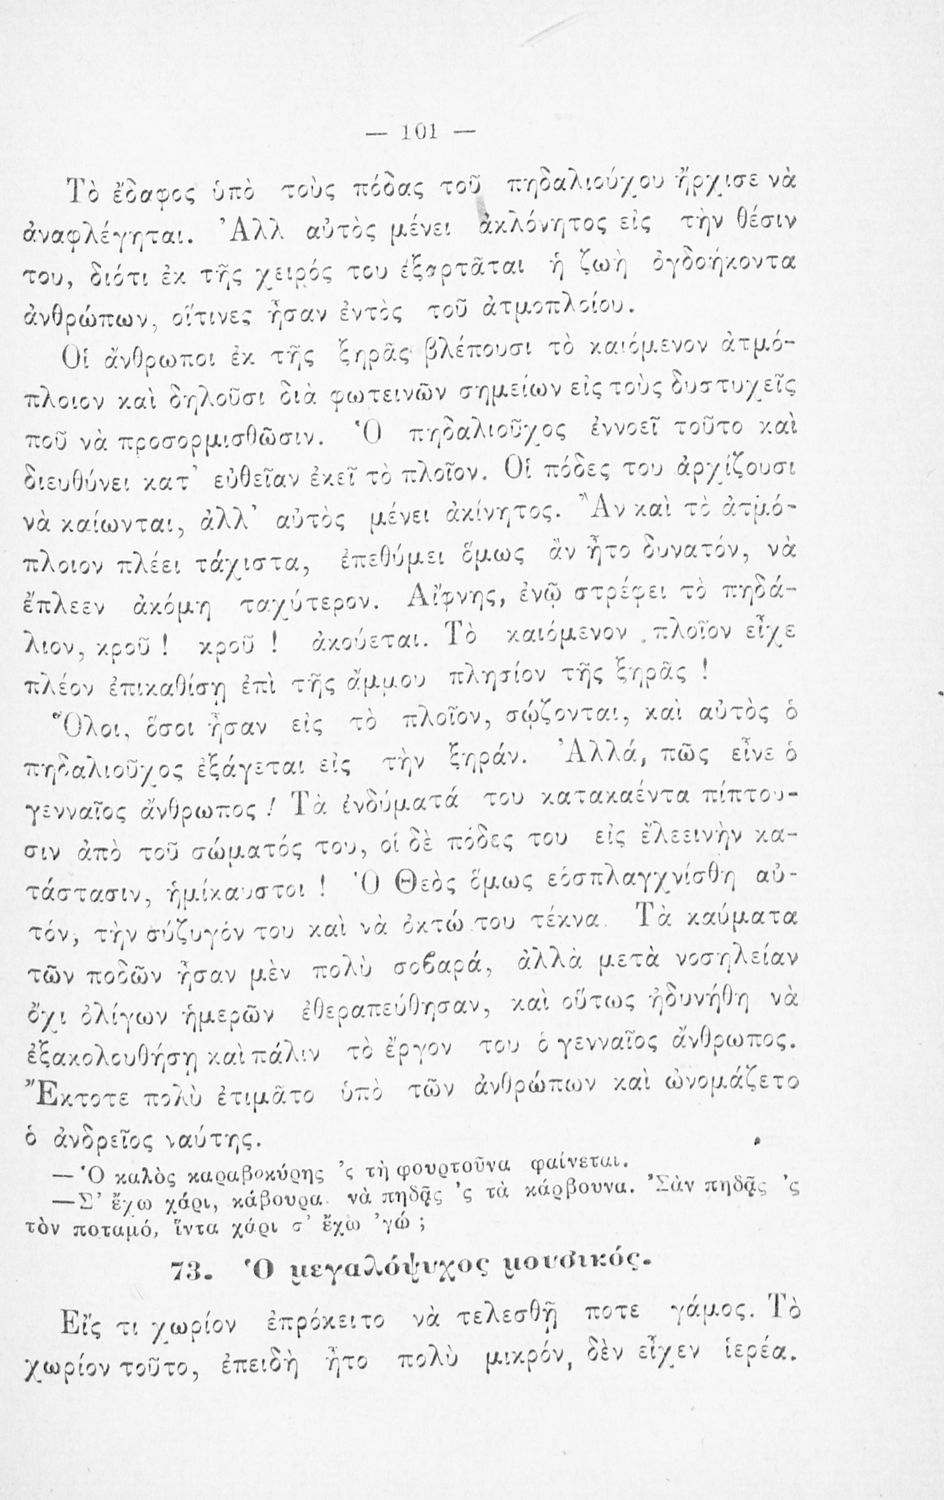 — 101 —
Τὸ ἔδαφος ὑπὸ τοὺς πόδας τοῦ πηδαλιούχου ἤρχισε νὰ
ἀναφλέγηται. Ἀλλ αὐτὸς μένει ἀκλόνητος εἰς τὴν θέσιν
του, διότι ἐκ τῆς χειρός του ἐξαρτᾶται ἡ ζωὴ ὀγδοήκοντα
ἀνθρώπων, οἵτινες ἦσαν ἐντὸς τοῦ ἀτμοπλοίου.
Οἱ ἄνθρωποι ἐκ τῆς ξηρᾶς βλέπουσι τὸ καιόμενον ἀτμό-
πλοιον καὶ δηλοῦσι διὰ φωτεινῶν σημείων εἰς τοὺς δυστυχεῖς
ποῦ νὰ προσορμισθῶσιν. Ὁ πηδαλιοῦχος ἐννοεῖ τοῦτο καὶ
διευθύνει κατ' εὐθεῖαν ἐκεῖ τὸ πλοῖον. Οἱ πόδες του ἀρχίζουσι
νὰ καίωνται, ἀλλ' αὐτὸς μένει ἀκίνητος. Ἂν καὶ τὸ ἀτμό-
πλοιον πλέει τάχιστα, ἐπεθύμει ὅμως ἂν ἦτο δυνατόν, νὰ
ἔπλεεν ἀκόμη ταχύτερον. Αἴφνης, ἐνῷ στρέφει τὸ πηδά-
λιον, κροῦ ! κροῦ ! ἀκούεται. Τὸ καιόμενον πλοῖον εἶχε
πλέον ἐπικαθίσῃ ἐπὶ τῆς ἄμμου πλησίον τῆς ξηρᾶς !
Ὅλοι, ὅσοι ἦσαν εἰς τὸ πλοῖον, σῴζονται, καὶ αὐτὸς ὁ
πηδαλιοῦχος ἐξάγεται εἰς τὴν ξηράν. Ἀλλά, πῶς εἶνε ὁ
γενναῖος ἄνθρωπος ! Τὰ ἐνδύματά του κατακαέντα πίπτου-
σιν ἀπὸ τοῦ σώματός του, οἱ δὲ πόδες του εἰς ἐλεεινὴν κα-
τάστασιν, ἡμίκαυστοι ! Ὁ Θεὸς ὅμως εὐσπλαγχνίσθη αὐ-
τόν, τὴν σύζυγόν του καὶ νὰ ὀκτώ του τέκνα. Τὰ καύματα
τῶν ποδῶν ἦσαν μὲν πολὺ σοβαρά, ἀλλὰ μετὰ νοσηλείαν
ὄχι ὀλίγων ἡμερῶν ἐθεραπεύθησαν, καὶ οὕτως ἠδυνήθη νὰ
ἐξακολουθήσῃ καὶ πάλιν τὸ ἔργον του ὁ γενναῖος ἄνθρωπος.
Ἔκτοτε πολὺ ἐτιμᾶτο ὑπὸ τῶν ἀνθρώπων καὶ ὠνομάζετο
ὁ ἀνδρεῖος ναύτης.
— Ὁ καλὸς καραβοκύρης 'ς τὴ φουρτοῦνα φαίνεται.
—Σ' ἔχω χάρι, κάβουρα νὰ πηδᾷς 'ς τὰ κάρβουνα. Σὰν πηδᾷς 'ς
τὸν ποταμό, ἵντα χάρι σ' ἔχω 'γώ ;
73. Ὁ μεγαλόψυχος μουσικός.
Εἴς τι χωρίον ἐπρόκειτο νὰ τελεσθῇ ποτε γάμος. Τὸ
χωρίον τοῦτο, ἐπειδὴ ἦτο πολὺ μικρόν, δὲν εἶχεν ἱερέα.